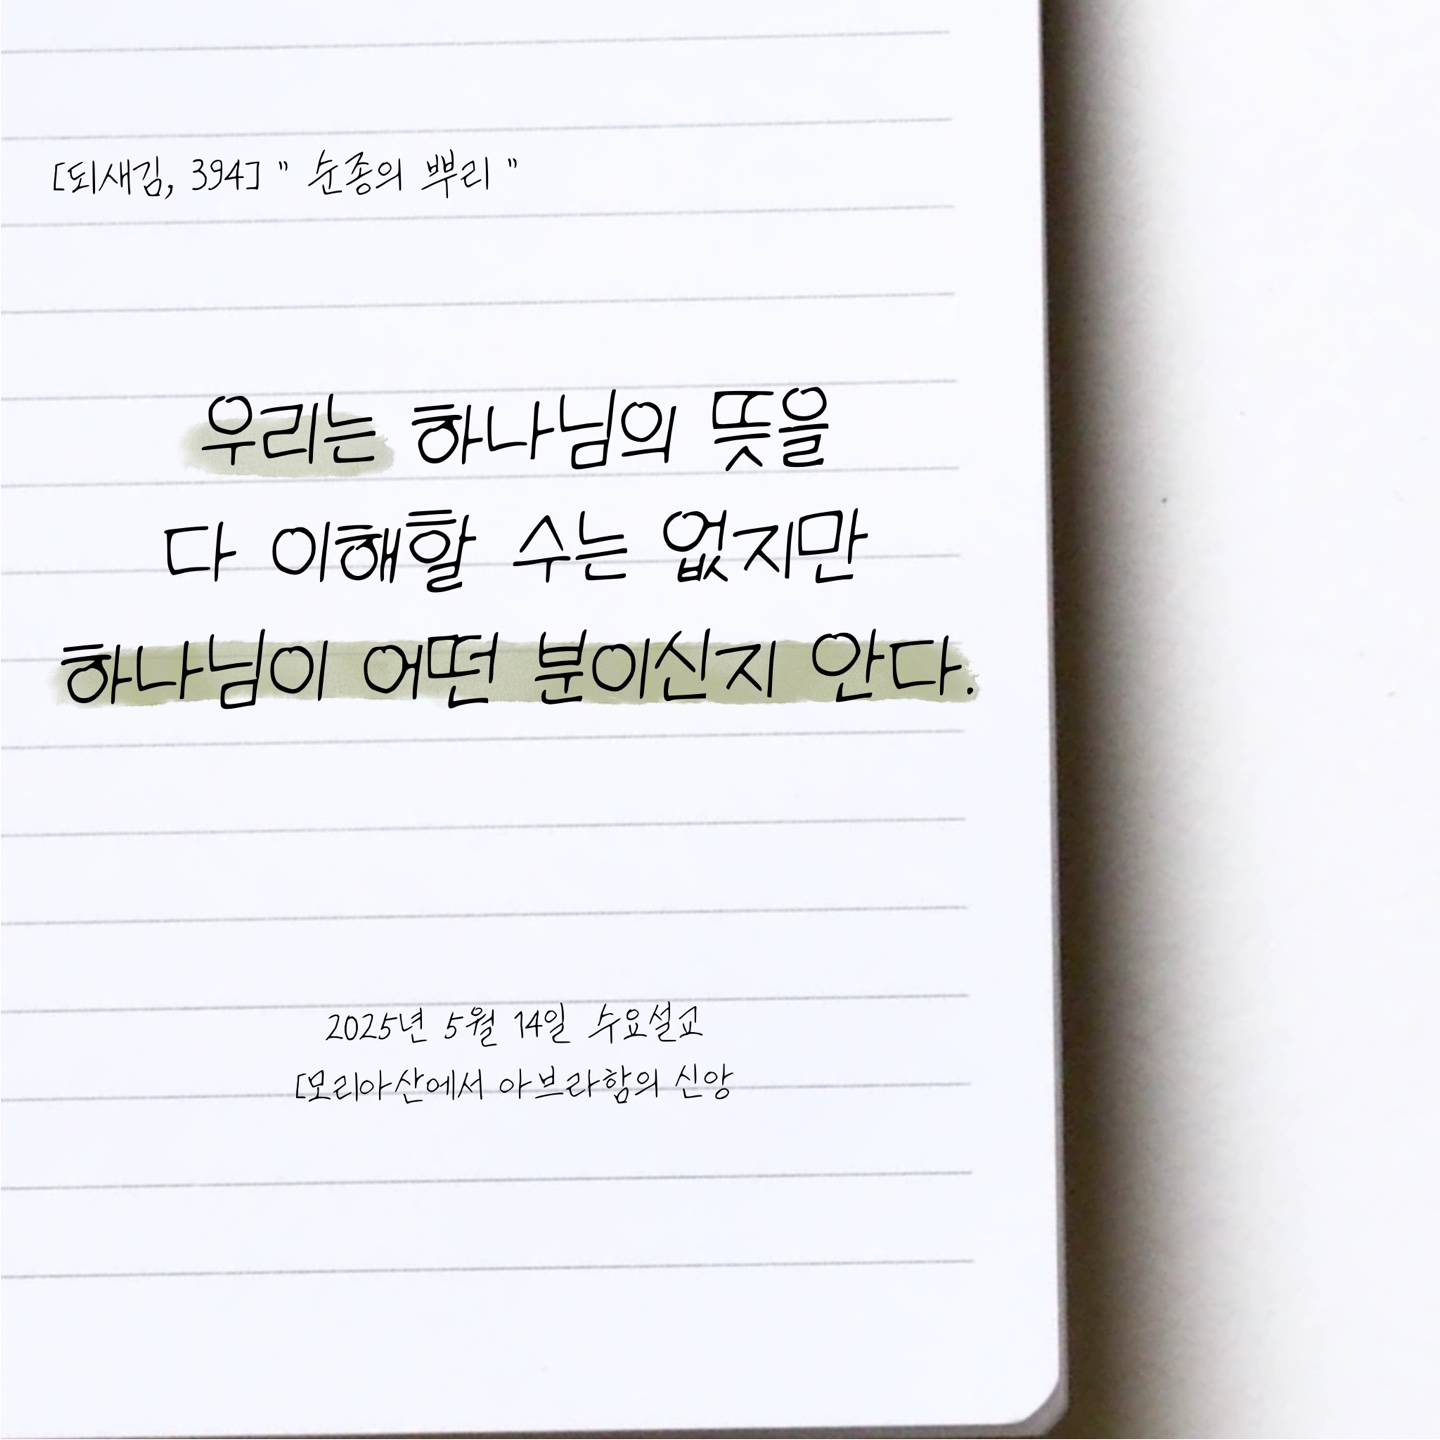 [되새김, 394] " 순종의 뿌리 "
우리는 하나님의 뜻을
다 이해할 수는 없지만
하나님이 어떤 분이신지 안다.
2025년 5월 14일 수요설교
[모리아산에서 아브라함의 신앙